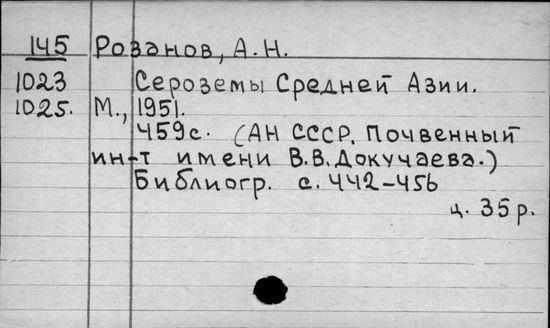 145 Розанов, А.Н.
1023 Сероземы Средней Азии.
1025. М., 1951.
459с. (АН СССР. Почвенный
ин-т имени В.В.Докучаева.)
Библиогр. с. 442-456
ц. 35р.